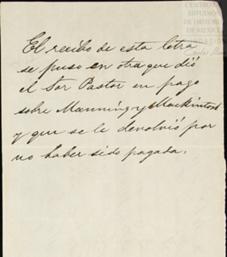 El recibo de esta letra
se puso en otra que dió
el Sor Pastor en pago
sobre Manning y Mackintosh
y que se le devolvió por
no haber sido pagada.